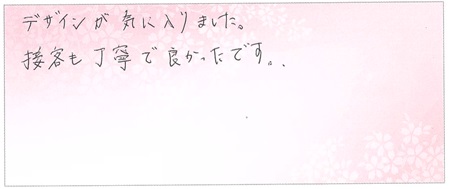 デザインが気に入りました。
接客も丁寧で良かったです。